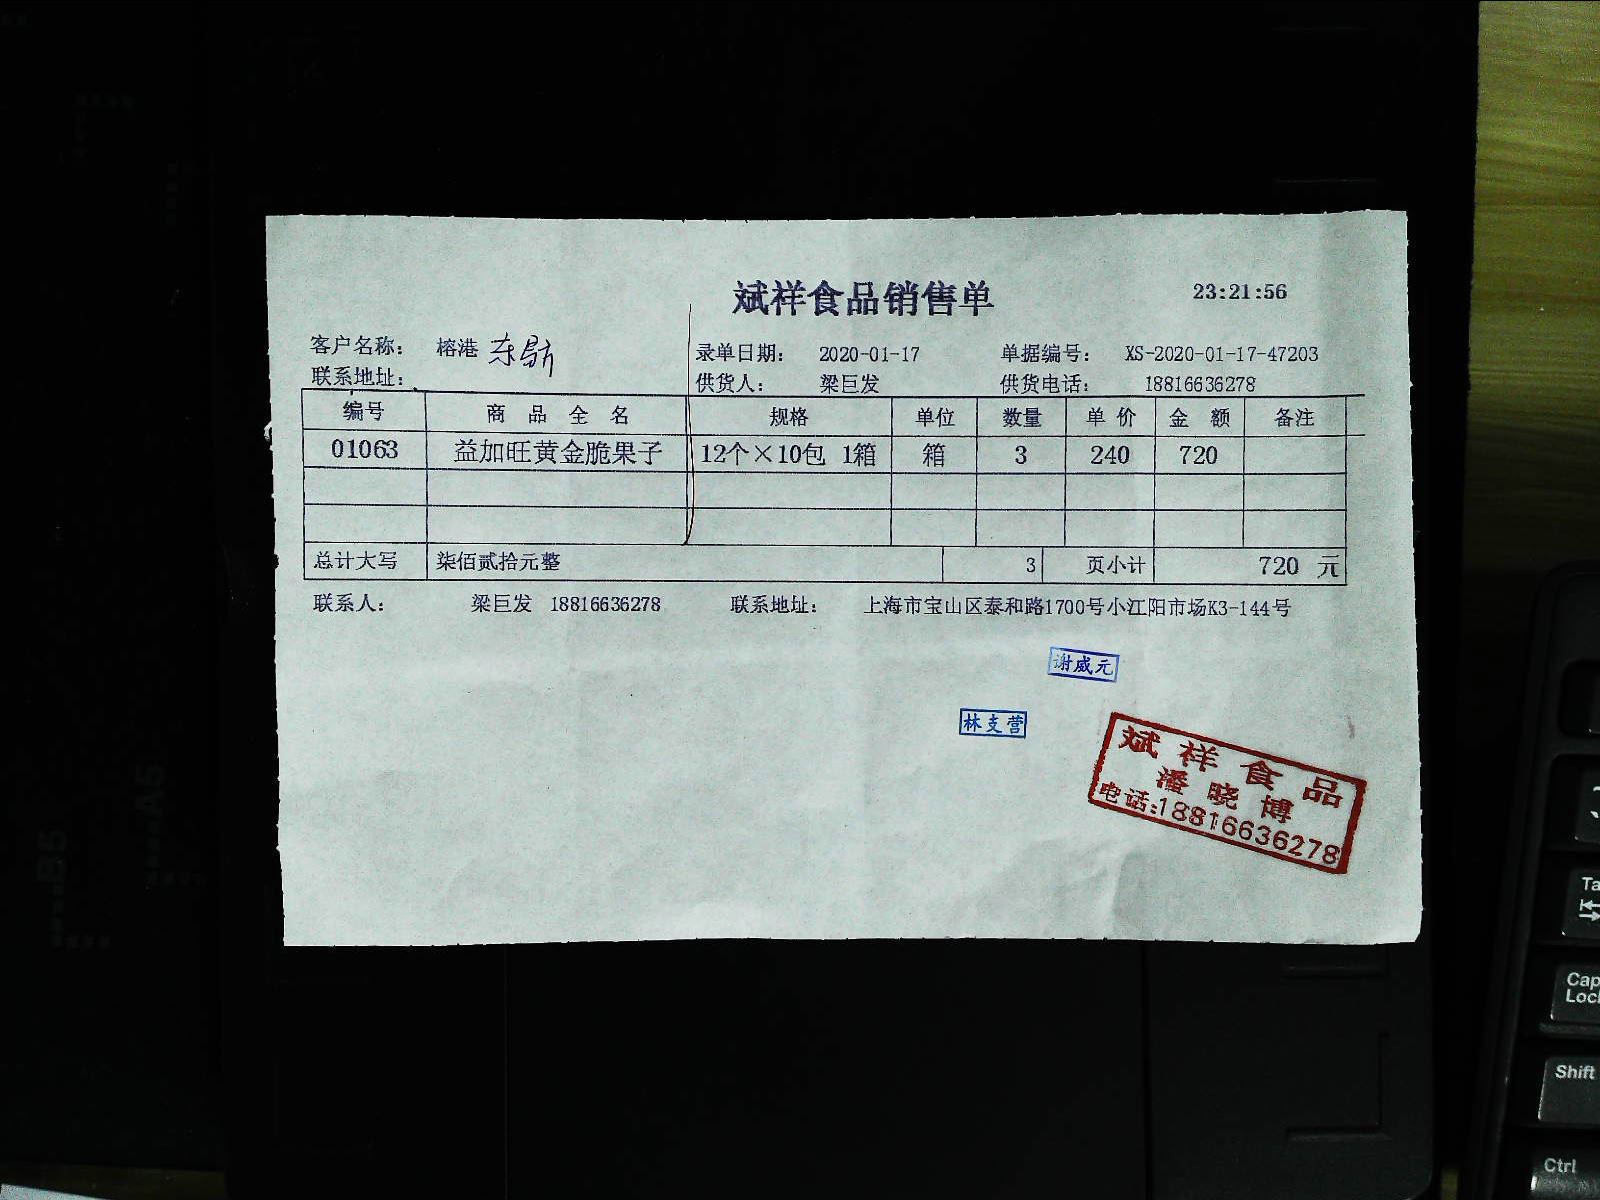 斌祥食品销售单 23:21:56
客户名称： 榕港 东航 录单日期： 2020-01-17 单据编号： XS-2020-01-17-47203
联系地址： 供货人： 梁巨发 供货电话： 18816636278
编号 商品全名 规格 单位 数量 单价 金额 备注
01063 益加旺黄金脆果子 12个×10包 1箱 箱 3 240 720
总计大写 柒佰贰拾元整 3 页小计 720 元
联系人： 梁巨发 18816636278 联系地址： 上海市宝山区泰和路1700号小江阳市场K3-144号
谢威元
林支营
斌祥食品
潘晓博
电话:18816636278
B5
A5
Ta
Cap
Loc
Shift
Ctrl